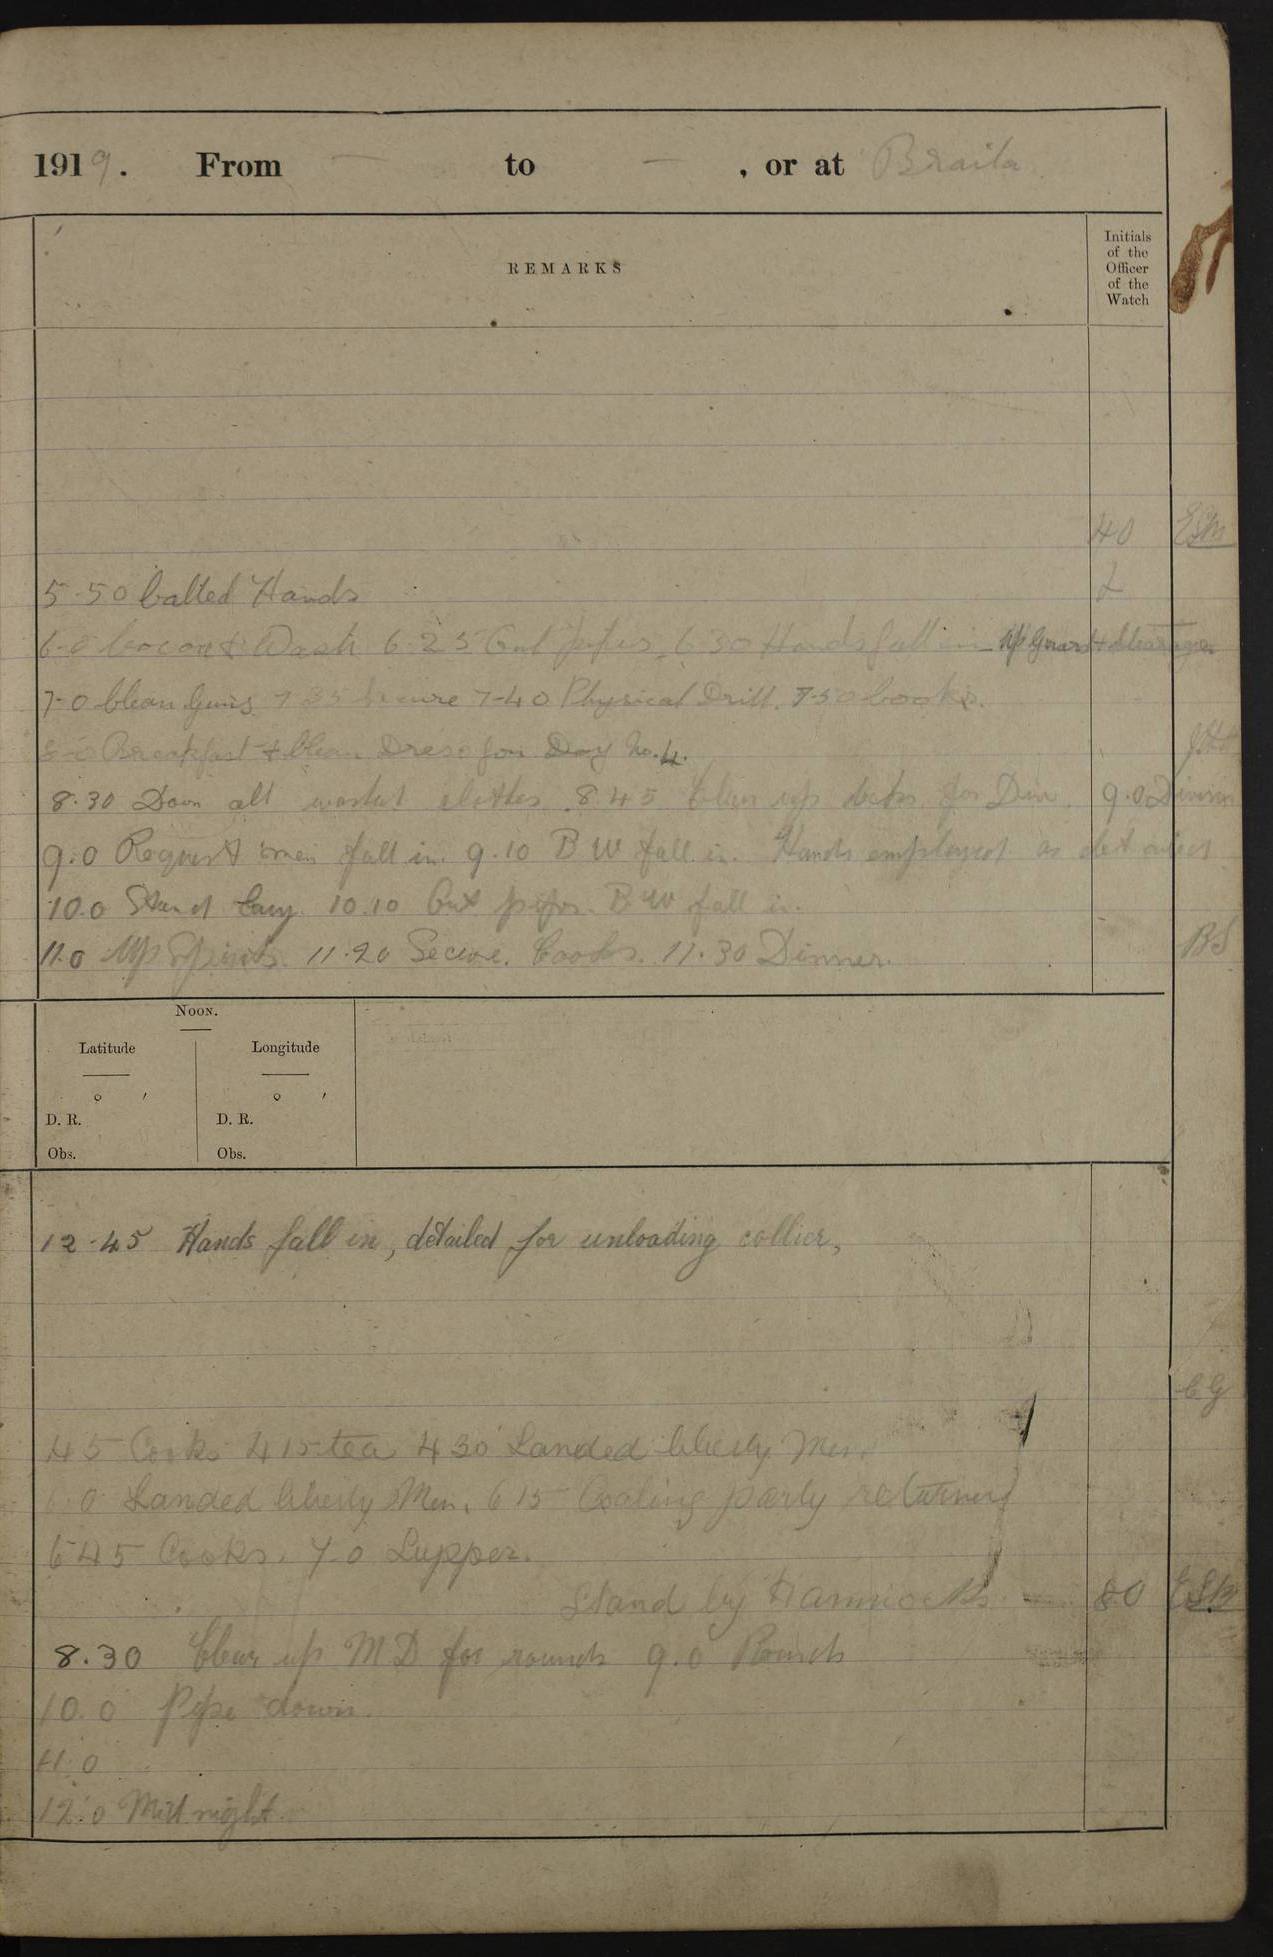 1919. From — to — , or at Braila
REMARKS
Initials
of the
Officer
of the
Watch
40 ESM
5.50 Called Hands
6.0 Cocoa & Wash 6.25 Out pipes 6.30 Hands fall in Up Guard &
7-0 Clean Guns 7 35 Secure 7-40 Physical Drill. 7-50 Cooks.
8-0 Breakfast & Clean Dress for Day No. 4.
8.30 Down all washed clothes 8 45 Clear up decks for Div. 9.0 Divisions
9.0 Request men fall in. 9.10 B W fall in. Hands employed as detailed
10.0 Stand Easy 10.10 Out pipes. B W fall in.
11.0 Up Spirits. 11.20 Secure. Cooks. 11.30 Dinner. BS
NOON.
Latitude Longitude
° ′ ° ′
D. R. D. R.
Obs. Obs.
12-45 Hands fall in, detailed for unloading collier,
CG
45 Cooks 4 15 tea 4 30 Landed liberty Men.
0 Landed liberty Men. 6 15 Coaling party returned
6 45 Cooks. 7-0 Supper.
Stand by Hammocks 80
8.30 Clear up M D for rounds 9.0 Rounds
10.0 Pipe down.
11.0
12.0 Midnight.